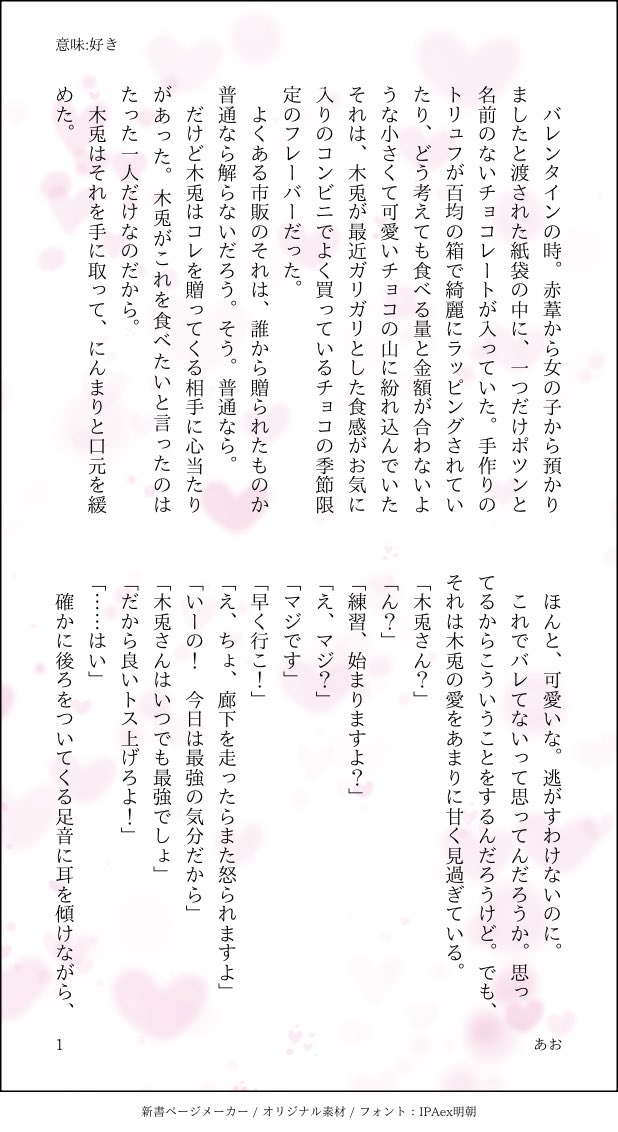 意味:好き
　バレンタインの時。赤葦から女の子から預かり
ましたと渡された紙袋の中に、一つだけポツンと
名前のないチョコレートが入っていた。手作りの
トリュフが百均の箱で綺麗にラッピングされてい
たり、どう考えても食べる量と金額が合わないよ
うな小さくて可愛いチョコの山に紛れ込んでいた
それは、木兎が最近ガリガリとした食感がお気に
入りのコンビニでよく買っているチョコの季節限
定のフレーバーだった。
　よくある市販のそれは、誰から贈られたものか
普通なら解らないだろう。そう。普通なら。
　だけど木兎はコレを贈ってくる相手に心当たり
があった。木兎がこれを食べたいと言ったのは
たった一人だけなのだから。
　木兎はそれを手に取って、にんまりと口元を緩
めた。
　ほんと、可愛いな。逃がすわけないのに。
　これでバレてないって思ってんだろうか。思っ
てるからこういうことをするんだろうけど。でも、
それは木兎の愛をあまりに甘く見過ぎている。
「木兎さん？」
「ん？」
「練習、始まりますよ？」
「え、マジ？」
「マジです」
「早く行こ！」
「え、ちょ、廊下を走ったらまた怒られますよ」
「いーの！　今日は最強の気分だから」
「木兎さんはいつでも最強でしょ」
「だから良いトス上げろよ！」
「……はい」
　確かに後ろをついてくる足音に耳を傾けながら、
1
あお
新書ページメーカー / オリジナル素材 / フォント：IPAex明朝